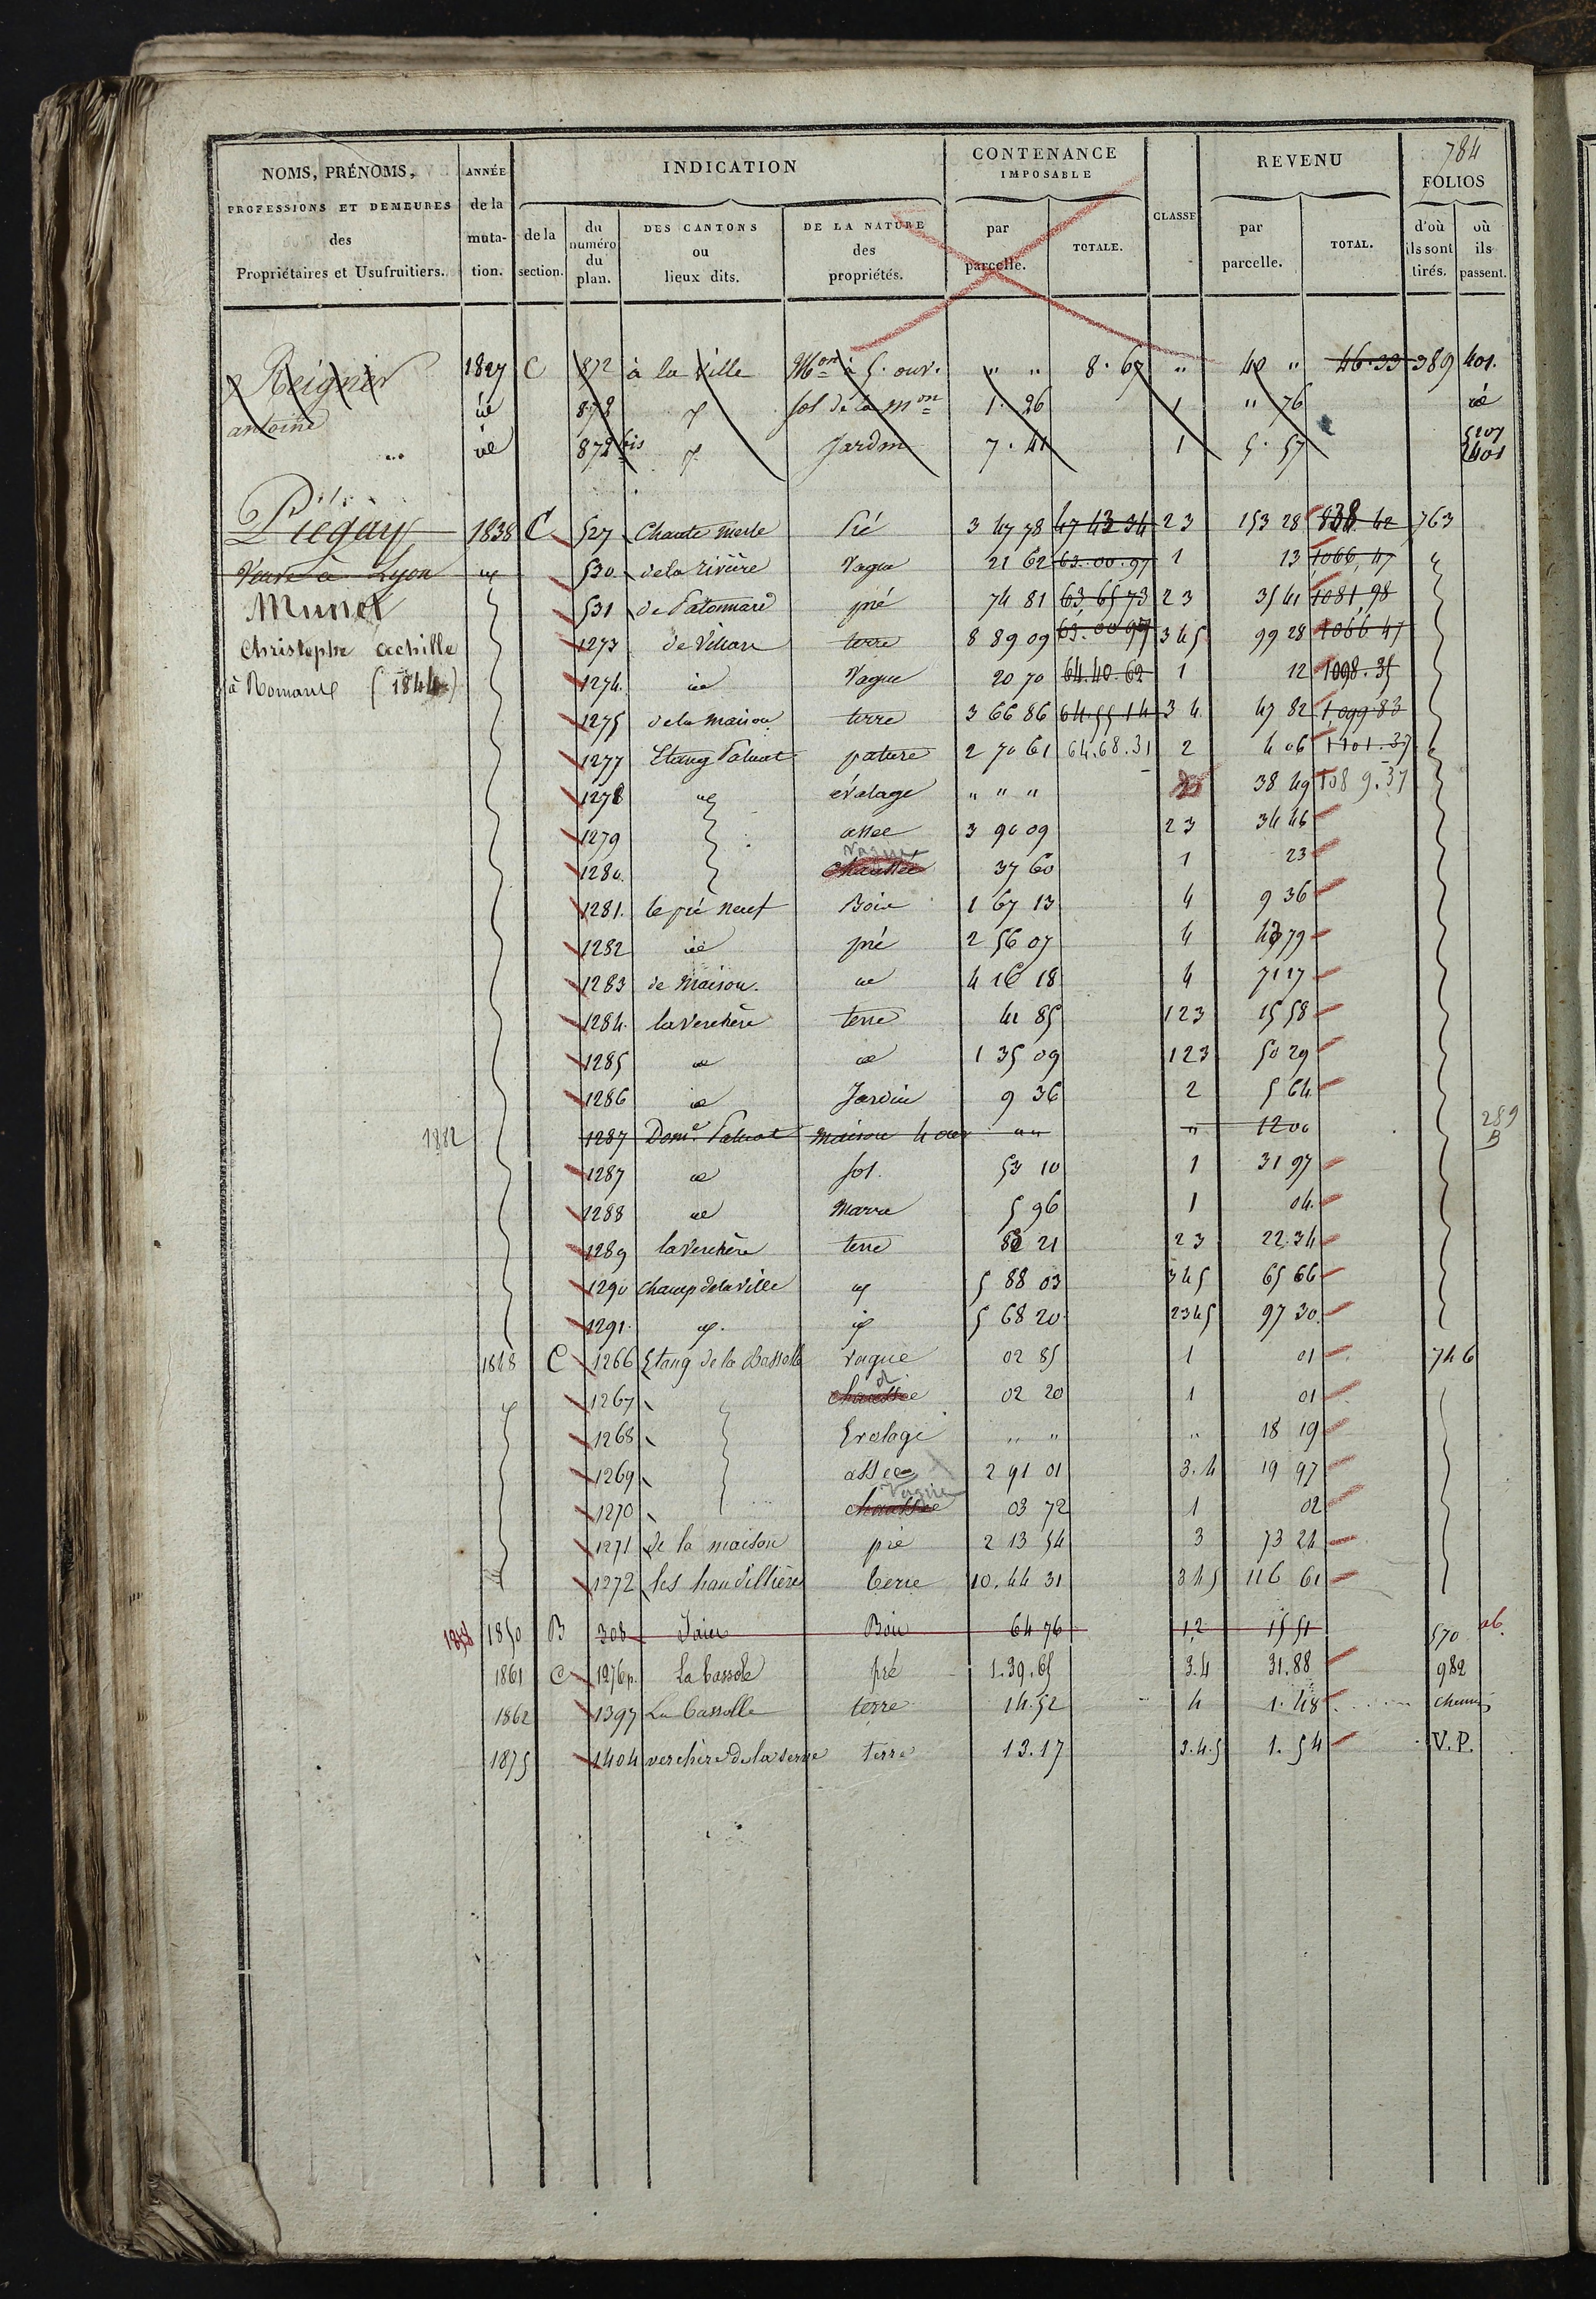 784
NOMS, PRÉNOMS, PROFESSIONS ET DEMEURES des Propriétaires et Usufruitiers.
ANNÉE de la muta- tion.
INDICATION
de la section.
du numéro du plan.
DES CANTONS ou lieux dits.
DE LA NATURE des propriétés.
CONTENANCE IMPOSABLE
par parcelle.
TOTALE.
CLASSE
REVENU
par parcelle.
TOTAL.
FOLIOS
d'où ils sont tirés.
où ils passent.
Reignier 1827 C 872 à la ville Mon à 5. ouv. " " 8. 67 " 40 " 46.33 389 401.
antoine id 872 sol de la mon 1. 26 1 " 76 id
id 872 bis Jardin 7. 41 1 5. 57 401
Piégay 1838 C 527 Chante merle Pré 3 47 78 47 43 34 2 3 153 28 838 42 763
Veuve à Lyon id 530 de la rivière Vague 21 62 63.00.97 1 13 1066,47
Munet 531 pré 74 81 63 65 73 2 3 35 41 1081,98
Christophe achille 1273 terre 8 89 09 63.00 97 3 4 5 99 28 1066 47
à Romans (1844) 1274. id Vague 20 70 64.40.62 1 12 1098.35
1275 de la maison terre 3 66 86 64.55 14 3 4 47 82 1,099 83
1277 Etang Paluat pature 2 70 61 64.68.31 2 4 06 1101.37
1278 id évolage " " " 38 49 1089.37
1279 assec 3 90 09 2 3 34 46
1280. chaussée vague 37 60 1 23
1281. le pré neuf Bois 1 67 13 4 9 36
1282 id pré 2 56 07 4 79
1283 de Maison. id 4 16 18 4 71 17
1284. la Verchère terre 41 85 1 2 3 15 58
1285 id id 1 35 09 1 2 3 50 29
1286 id Jardin 9 36 2 5 64
1882 1287 Dome Paluat maison 4 ouv " " " 12 00 289 B
1287 id sol. 53 10 1 31 97
1288 id Marre 5 96 1 04.
1289 la Verchère terre 21 2 3 22.34
1290 champ de la ville id 5 88 03 3 4 5 65 66
1291. id. id 5 68 20 2 3 4 5 97 30.
1848 C 1266 Etang de la Bassolle vague 02 85 1 01 746
1267 chaussée 02 20 1 01
1268 Evolage " " " 18 19
1269 assec 2 91 01 3.4 19 97
1270 chaussée Vague 03 72 1 02
1271 de la maison pré 2 13 54 3 73 24
1272 terre 10.44 31 3 4 5 116 61
1850 B 308 Bois 64 76 1,2 15 51 570
1861 C 1276p. La bassole pré 1.39.65 3.4 31.88 982
1862 1397 La bassolle terre 14.52 4 1.48 chemin
1875 1404 verchère de la serve terre 13.17 3.4.5 1.54 V.P.